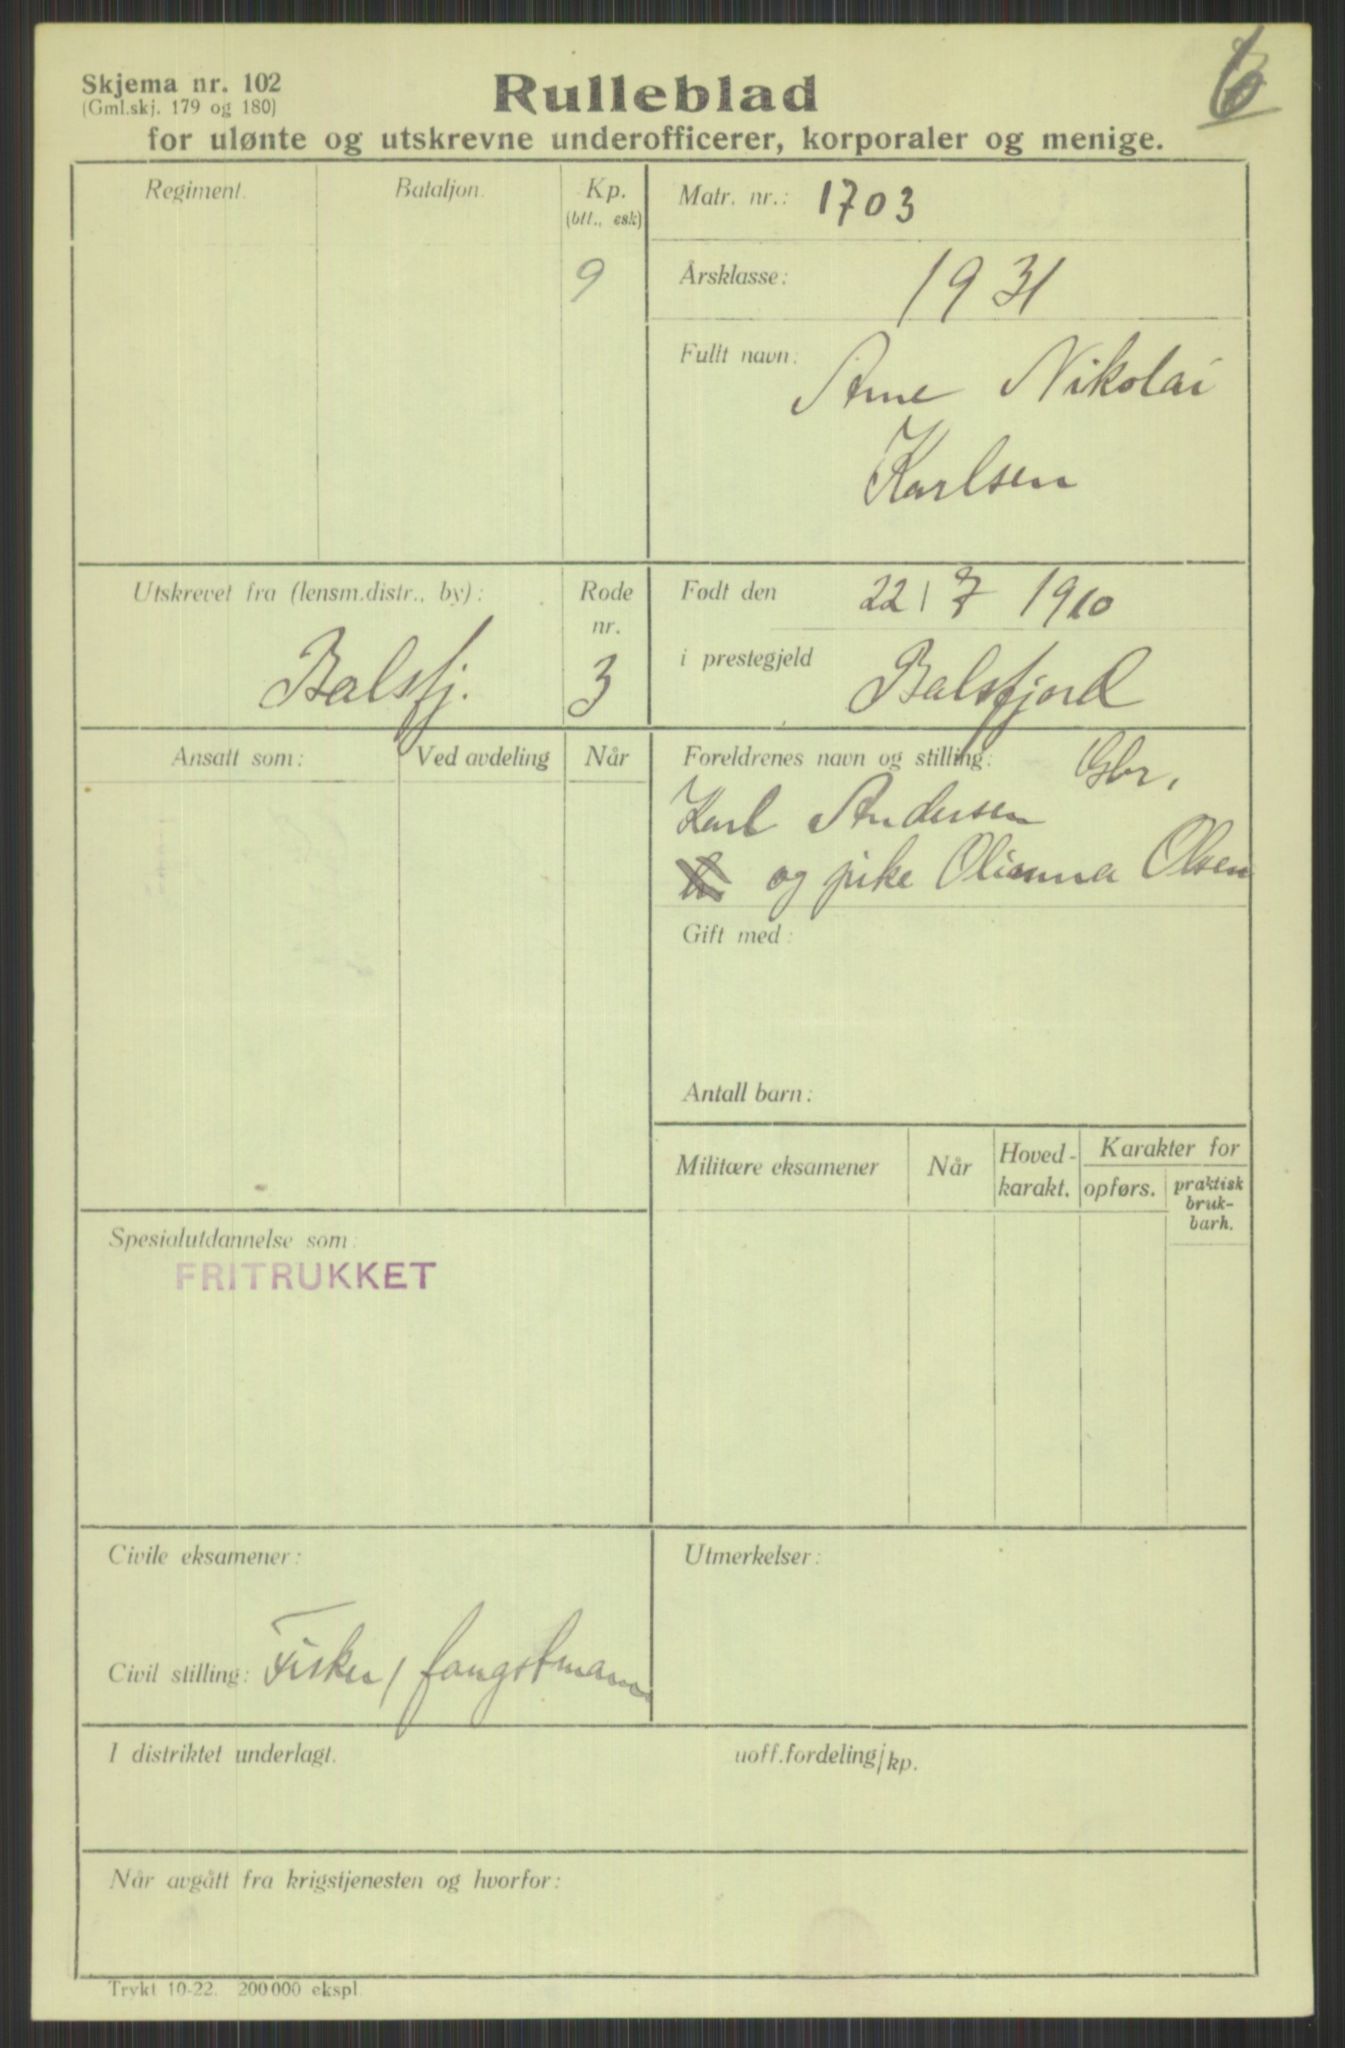 Skjema nr. 102
(Gml.skj. 179 og 180)
Rulleblad
for ulønte og utskrevne underofficerer, korporaler og menige.
Regiment.
Bataljon.
Kp.
(btt., esk)
9
Matr. nr.: 1703
Årsklasse: 1931
Fullt navn: Arne Nikolai
Karlsen
Utskrevet fra (lensm.distr., by):
Balsfj.
Rode
nr.
3
Født den 22/7 1910
i prestegjeld Balsfjord
Ansatt som:
Ved avdeling
Når
Foreldrenes navn og stilling: Gbr.
Karl Andersen
og pike Olianna Olsen
Gift med:
Antall barn:
Militære eksamener
Når
Hoved-
karakt.
Karakter for
opførs.
praktisk
bruk-
barh.
Spesialutdannelse som:
FRITRUKKET
Civile eksamener:
Civil stilling: Fisker / fangstmann
Utmerkelser:
I distriktet underlagt.
uoff.fordeling/kp.
Når avgått fra krigstjenesten og hvorfor:
Trykt 10-22. 200 000 ekspl.